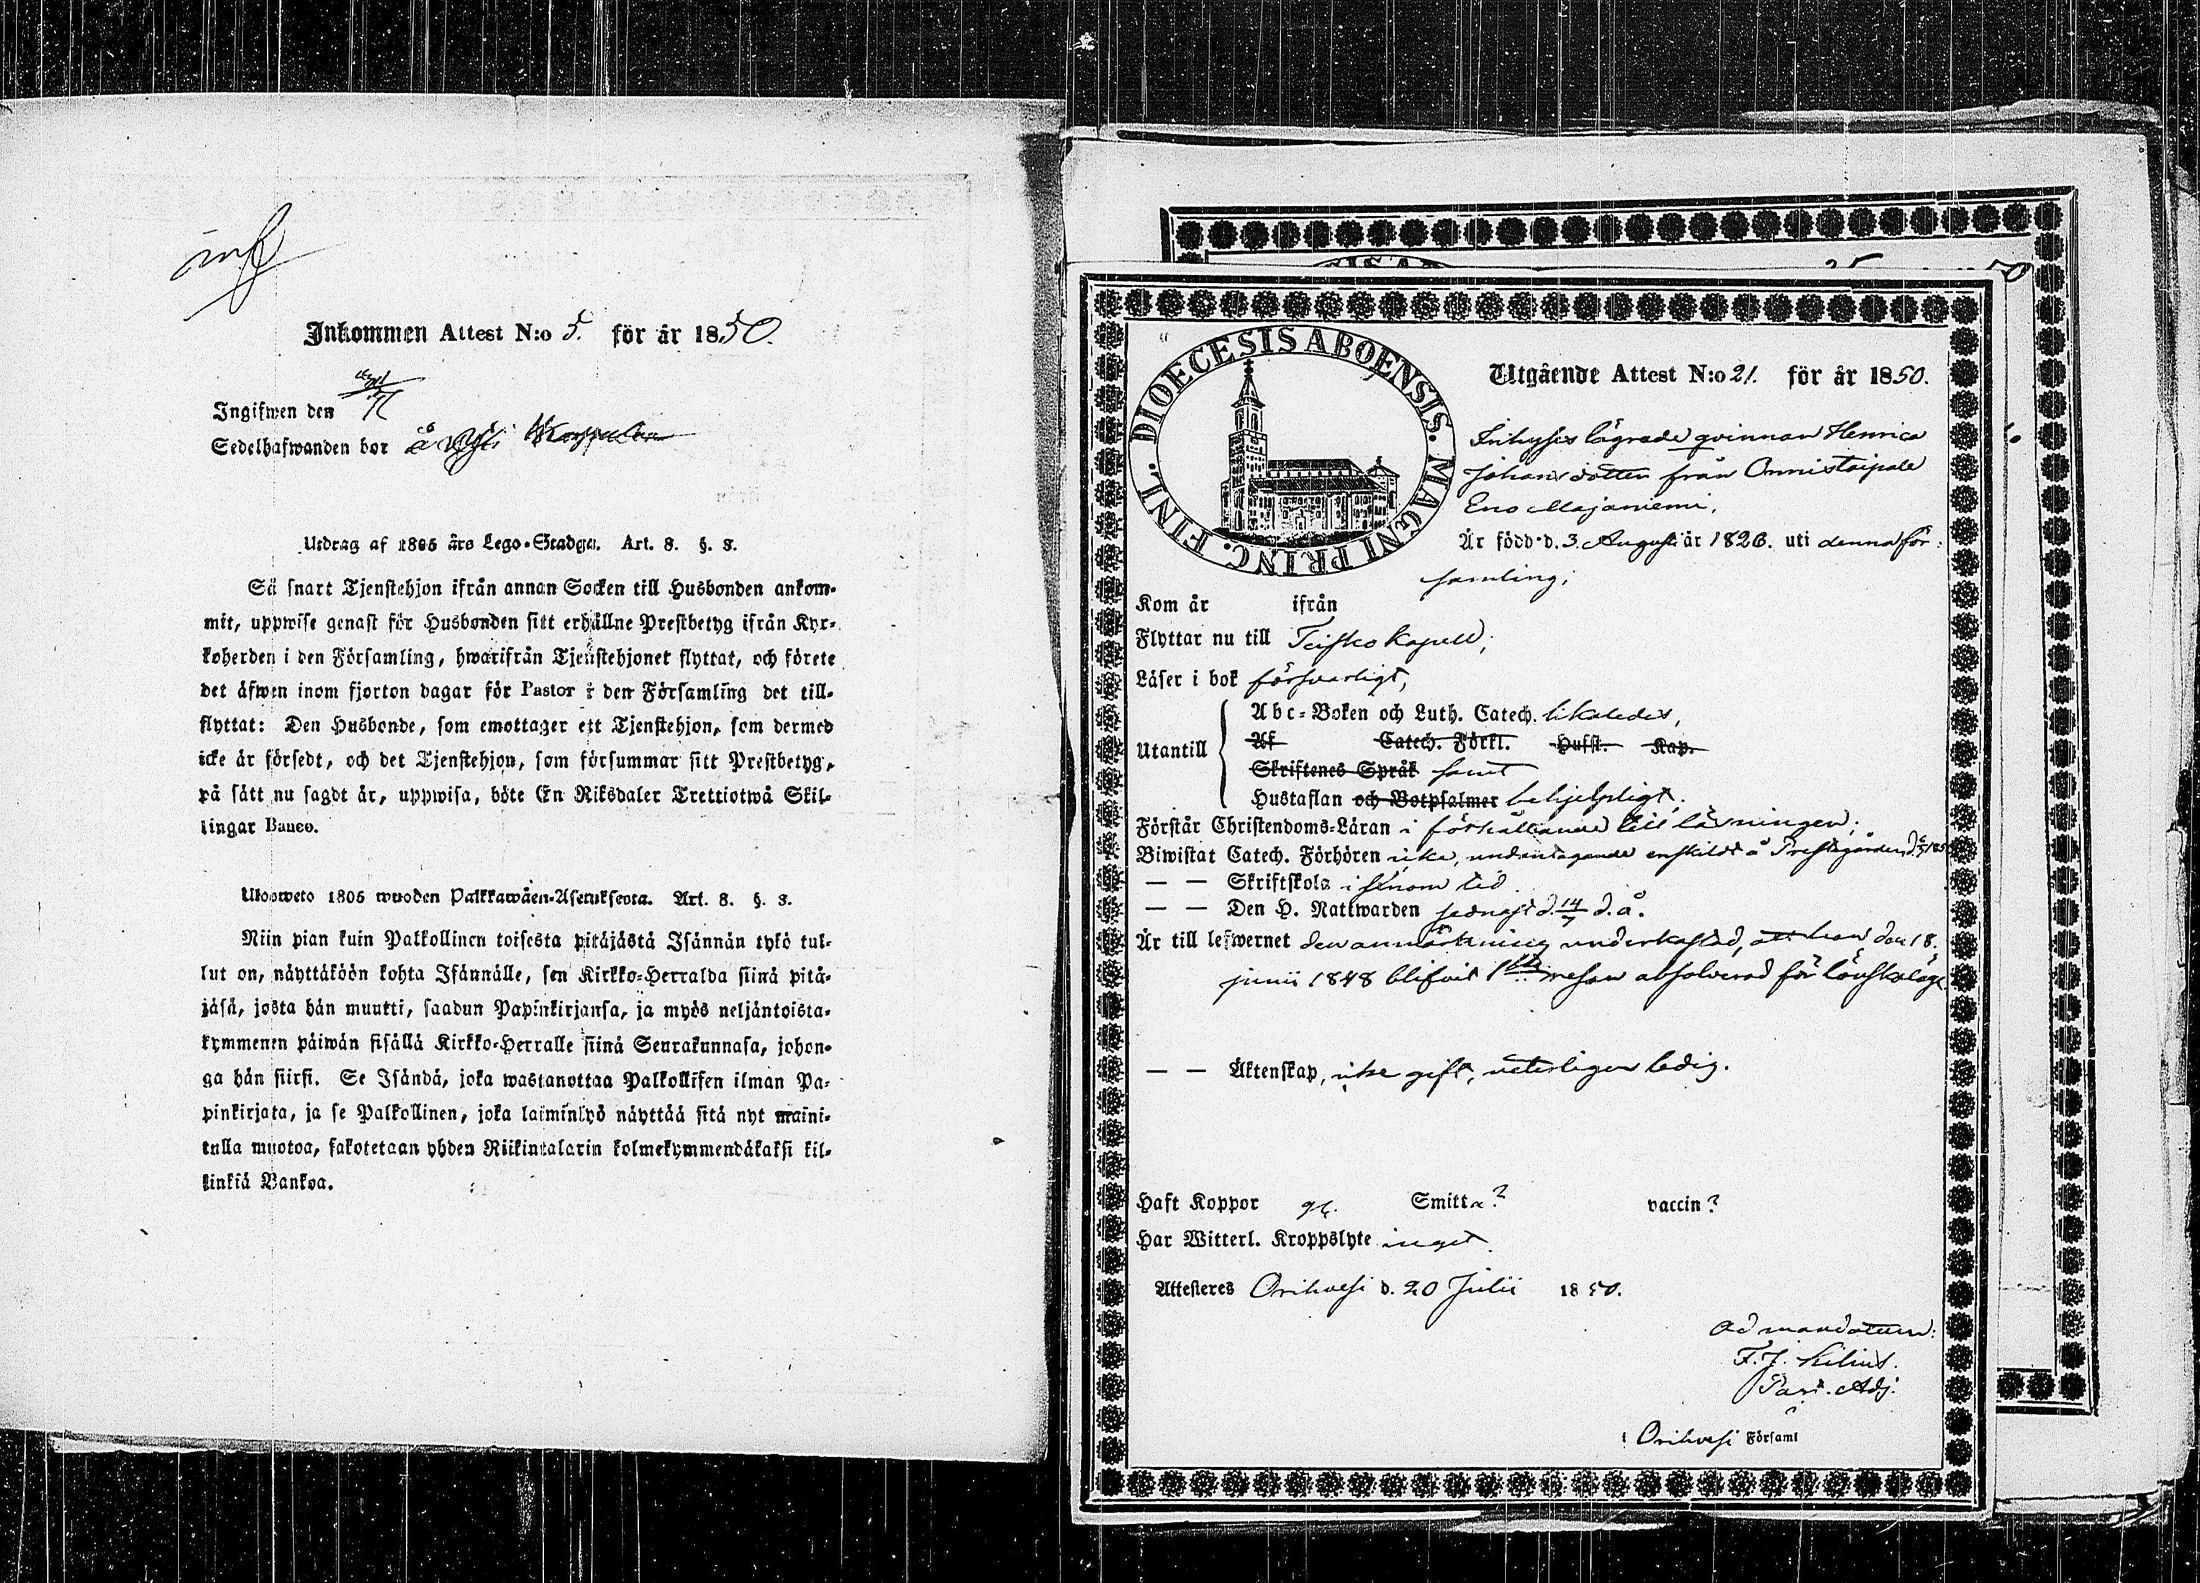 Inkommen Attest N:o 5. för år 1850.
Ingifwen den
Sedelhafwanden bor å
Utdrag af 1805 års Lego-Stadga. Art. 8. §. 3.
Så snart Tjenstehjon ifrån annan Socken till Husbonden ankom-
mit, uppwise genast för Husbonden sitt erhållne Prestbetyg ifrån Kyr-
koherden i den Församling, hwarifrån Tjenstehjonet flyttat, och förete
det äfwen inom fjorton dagar för Pastor i den Församling det till-
flyttat: Den Husbonde, som emottager ett Tjenstehjon, som dermed
icke är försedt, och det Tjenstehjon, som försummar sitt Prestbetyg,
på sätt nu sagdt är, uppwisa, böte En Riksdaler Trettiotwå Skil-
lingar Banco.
Ulosweto 1805 wuoden Palkkawäen-Asetuksesta. Art. 8. §. 3.
Niin pian kuin Palkollinen toisesta pitäjästä Isännän tykö tul-
lut on, näyttäköön kohta Isännälle, sen Kirkko-Herralda siinä pitä-
jäsä, josta hän muutti, saadun Papinkirjansa, ja myös neljäntoista-
kymmenen päiwän sisällä Kirkko-Herralle siinä Seurakunnasa, johon-
ga hän siirsi. Se Isändä, joka wastanottaa Palkollisen ilman Pa-
pinkirjata, ja se Palkollinen, joka laiminlyö näyttää sitä nyt maini-
tulla muotoa, sakotetaan yhden Riikintalarin kolmekymmendäkaksi kil-
linkiä Bankoa.
DIOECESIS ABOENSIS. MAGNI PRINC. FINL.
Utgående Attest N:o 21. för år 1850.
lägrade qvinnan Henrica
Johansdotter från Onnistaipale
Eno Majaniemi,
Är född d. 3. Augusti år 1826. uti denna för-
samling;
Kom år ifrån
Flyttar nu till Teisko Kapell;
Läser i bok försvarligt,
Abc-Boken och Luth. Catech. likaledes,
Utantill Af Catech. Förkl. Hufst. Kap.
Skriftenes Språk samt
Hustaflan och Botpsalmer behjelpligt.
Förstår Christendoms-Läran i förhållande till läsningen;
Biwistat Catech. Förhören icke, undantagande enskildt å Prestegården
— — Skriftskola i sinom tid.
— — Den H. Nattwarden sednast d. 14/7 d. å.
Är till lefwernet den anmärkning underkastad, att hon den 18.
junii 1848 blifvit 1sta resan absolverad för lönskaläge
— — Äktenskap, icke gift, veterligen ledig.
Haft Koppor Smitta? vaccin?
Har Witterl. Kroppslyte inget.
Attesteres Orihvesi d. 20 Julii 1850.
Ad mandatum:
Past. Adj.
i Orihvesi Församl